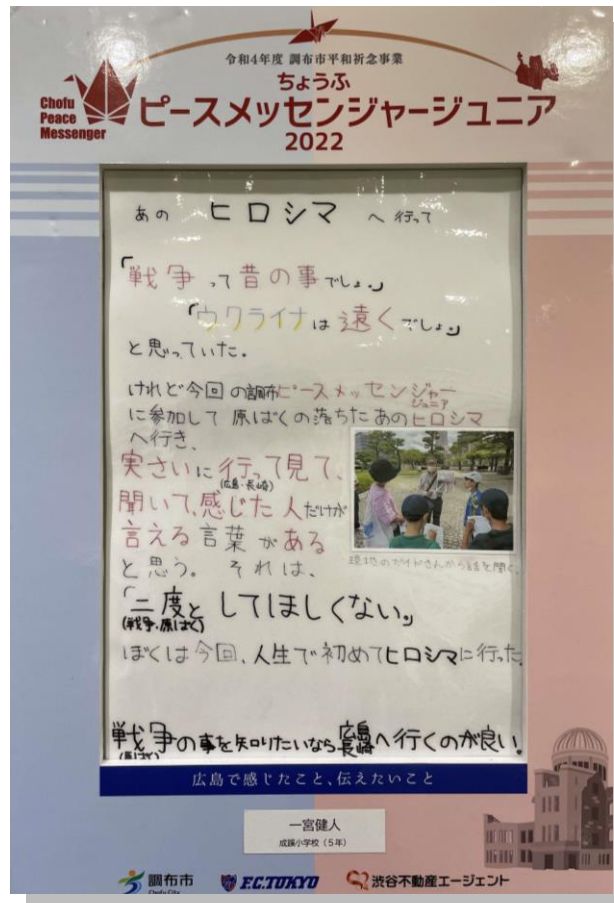 令和4年度 調布市平和祈念事業
ちょうふ
Chofu
Peace
Messenger
ピースメッセンジャージュニア
2022
あの ヒロシマ へ行って
「戦争って昔の事でしょ。」
「ウクライナは遠くでしょ。」
と思っていた。
けれど今回の調布ピースメッセンジャー
ジュニア
に参加して 原ばくの落ちたあのヒロシマ
へ行き、
実さいに行って見て、
(広島・長崎)
聞いて、感じた人だけが
言える言葉がある
と思う。それは、
現地のガイドさんから話を聞く。
「二度としてほしくない。」
(戦争・原ばく)
ぼくは今回、人生で初めてヒロシマに行った。
戦争の事を知りたいなら広島長崎へ行くのが良い。
(原ばく)
広島で感じたこと、伝えたいこと
一宮健人
成蹊小学校(5年)
調布市
Chofu City
F.C.TOKYO
渋谷不動産エージェント